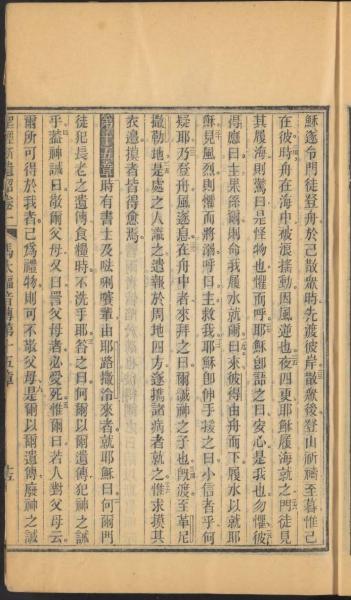 穌遂令門徒登舟於己散眾時先渡彼岸散眾後登山祈禱至暮惟己
在彼時舟在海中被浪搖動因風逆也夜四更耶穌履海就之門徒見
其履海則驚曰是怪物也懼而呼耶穌卽語之曰安心是我也勿懼彼
得應曰主果係爾則命我履水就爾曰來彼得由舟而下履水以就耶
穌見風烈則懼而將溺呼曰主救我耶穌卽伸手援之曰小信者乎何
疑耶乃登舟風遂息在舟中者來拜之曰爾誠神之子也旣渡至革尼
撒勒地是處之人識之遣報於周地四方遂攜諸病者就之惟求摸其
衣邊摸者皆得愈焉
第十五章時有書士及𠵽唎㘔輩由耶路撒冷來者就耶穌曰何爾門
徒犯長老之遺傳食糧時不洗手耶答之曰何爾以爾遺傳犯神之誡
乎蓋神誡曰敬爾父母又曰詈父母者必愛死惟爾曰若人對父母云
爾所可得於我者已爲禮物則可不敬父母是爾以爾遺傳廢神之誡
馬太福音傳第十五章